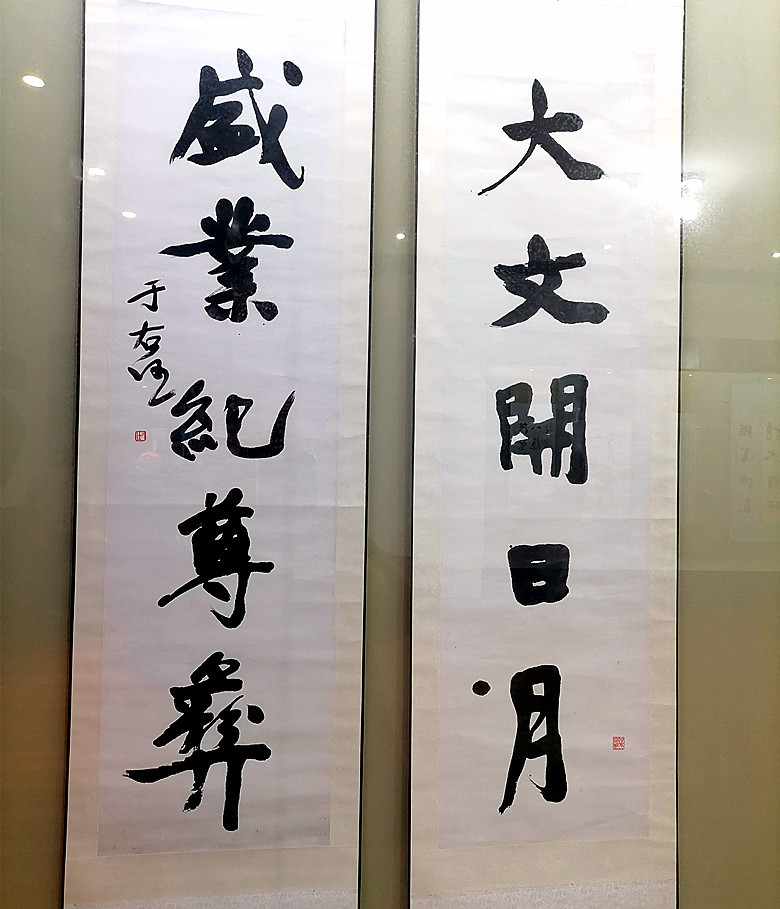 大文開日月
盛業紀尊彝
于右任